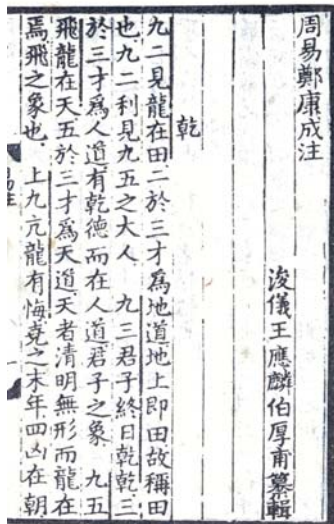 周易鄭康成注
浚儀王應麟伯厚甫纂輯
乾
九二見龍在田二於三才爲地道地上即田故稱田
也九二利見九五之大人 九三君子終日乾乾三
於三才爲人道有乾德而在人道君子之象 九五
飛龍在天五於三才爲天道天者清明無形而龍在
焉飛之象也 上九亢龍有悔堯之末年四凶在朝